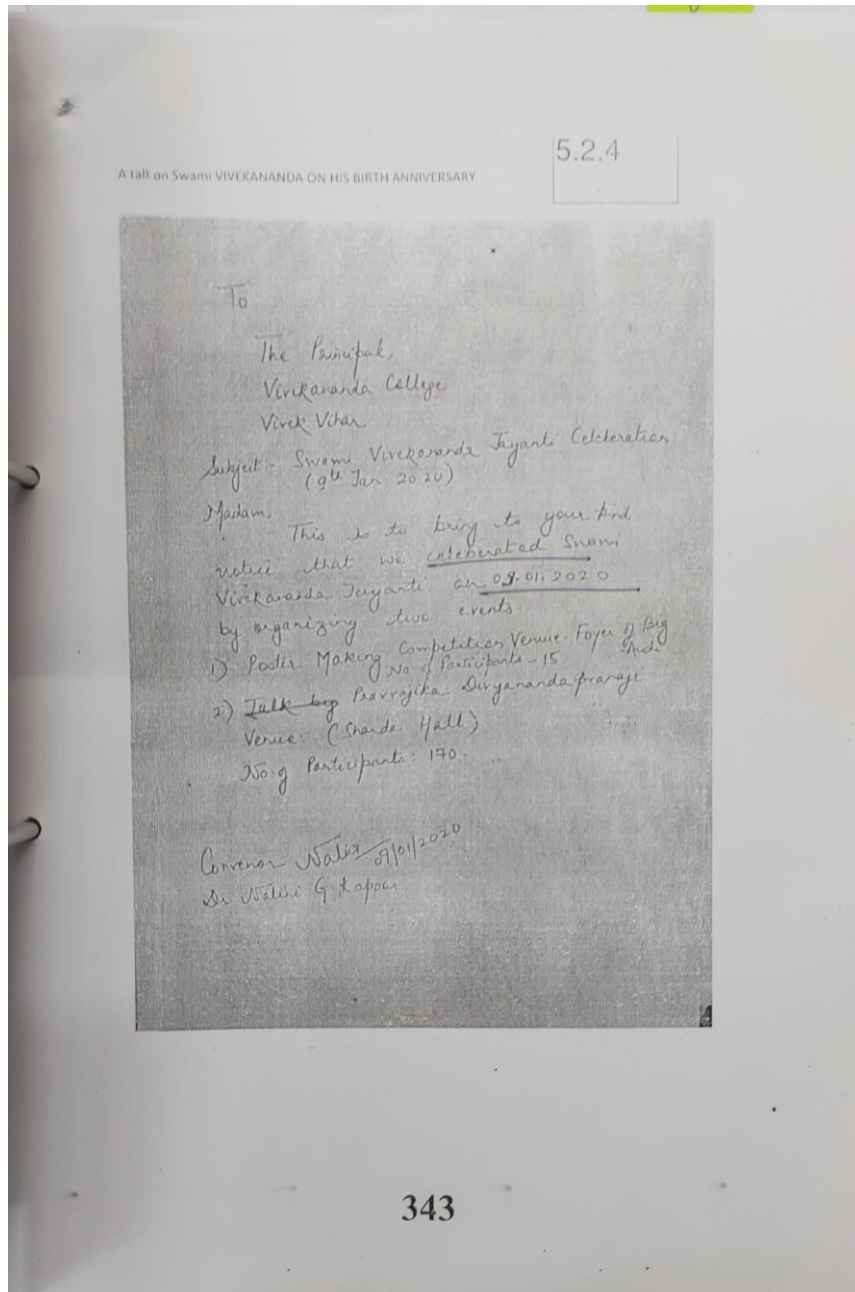 5.2.4
A talk on Swami VIVEKANANDA ON HIS BIRTH ANNIVERSARY
To
The Principal,
Vivekananda College
Vivek Vihar
Subject:- Swami Vivekananda Jayanti Celebration
(9th Jan 2020)
Madam,
This is to bring to your kind
notice that we celeberated Swami
Vivekananda Jayanti on 09.01.2020
by organizing two events
1) Poster Making Competition Venue- Foyer of Big Audi
No of Participants - 15
2.) Talk by Pravrajika Divyananda pranaji
Venue: (Sharda Hall)
No. of Participants: 170.
Convenor Nalini 09/01/2020
Dr Nalini G Kapoor
343